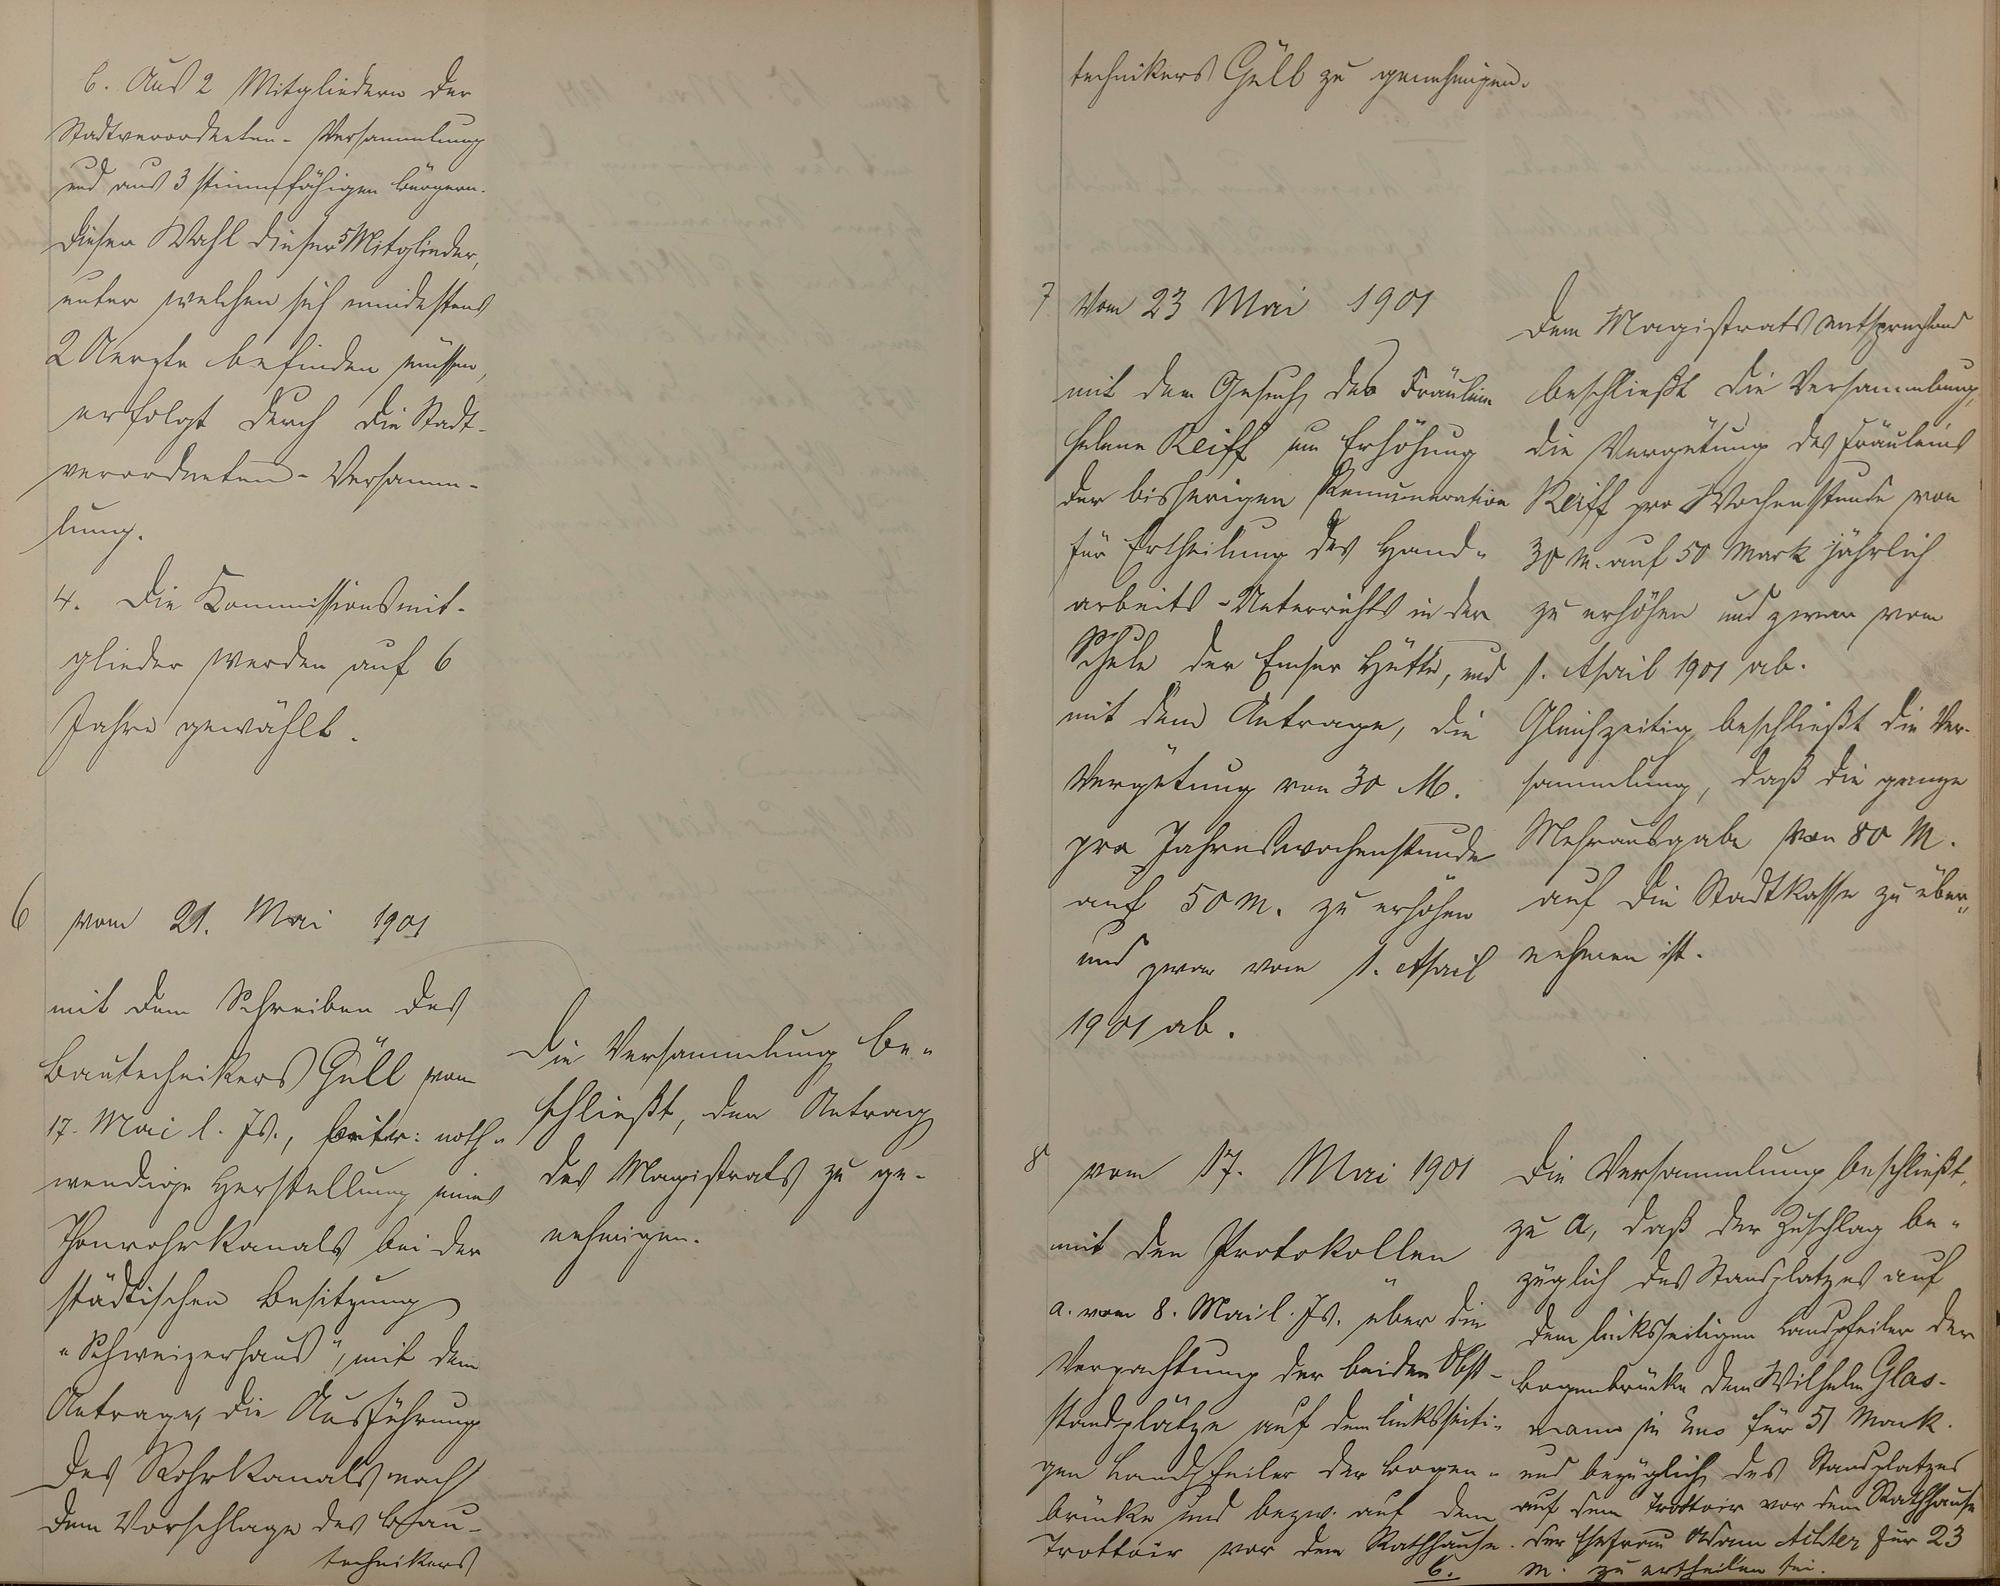 b. Aus 2 Mitgliedern der
Stadtverordneten-Versammlung
und aus 3 stimmfähigen Bürgern.
Diesen Wahl dieser 5 Mitglieder,
unter welchen sich mindestens
2 Aerzte befinden müssen,
erfolgt durch die Stadt-
verordneten-Versamm-
lung.
4. Die Kommissionsmit-
glieder werden auf 6
Jahre gewählt.
6 vom 21. Mai 1901
mit dem Schreiben des
Bautechnikers Güll vom
17. Mai l. Js., noth-
wendige Herstellung eines
Thonrohrkanals bei der
städtischen Besitzung
"Schweizerhaus", mit dem
Antrage, die Ausführung
des Rohrkanals nach
dem Vorschlage des Bau-
technikers
Die Versammlung be-
schließt, den Antrag
des Magistrats zu ge-
nehmigen.
technikers Güll zu genehmigen.
7 vom 23 Mai 1901
mit dem Gesuch des Fräulein
Helene Reiff um Erhöhung
der bisherigen Remuneration
für Ertheilung des Hand-
arbeits-Unterrichts in der
Schule der Emser Hütte, und
mit dem Antrage, die
Vergütung von 30 M.
pro Jahreswochenstunde
auf 50 M. zu erhöhen
und zwar vom 1. April
1901 ab.
Dem Magistrats entsprechend
beschließt die Versammlung,
die Vergütung des Fräuleins
Reiff pro Wochenstunde von
30 M. auf 50 Mark jährlich
zu erhöhen und zwar vom
1. April 1901 ab.
Gleichzeitig beschließt die Ver-
sammlung, daß die ganze
Mehrausgabe von 80 M.
auf die Stadtkasse zu über-
nehmen ist.
8 vom 17. Mai 1901
mit den Protokollen
a. vom 8. Mai l. Js. über die
Verpachtung der beiden Obst-
standplätze auf dem linksseiti-
gen Landpfeiler der Bogen-
brücke und bezw. auf dem
Trottoir vor dem Rathhause.
b.
Die Versammlung beschließt,
zu a, daß der Zuschlag be-
züglich des Standplatzes auf
dem linksseitigen Landpfeiler der
Bogenbrücke dem Wilhelm Glas-
mann in Ems für 51 Mark.
und bezüglich des Standplatzes
auf dem Trottoir vor dem Rathhause
der Ehefrau Adam für 23
M. zu ertheilen sei.